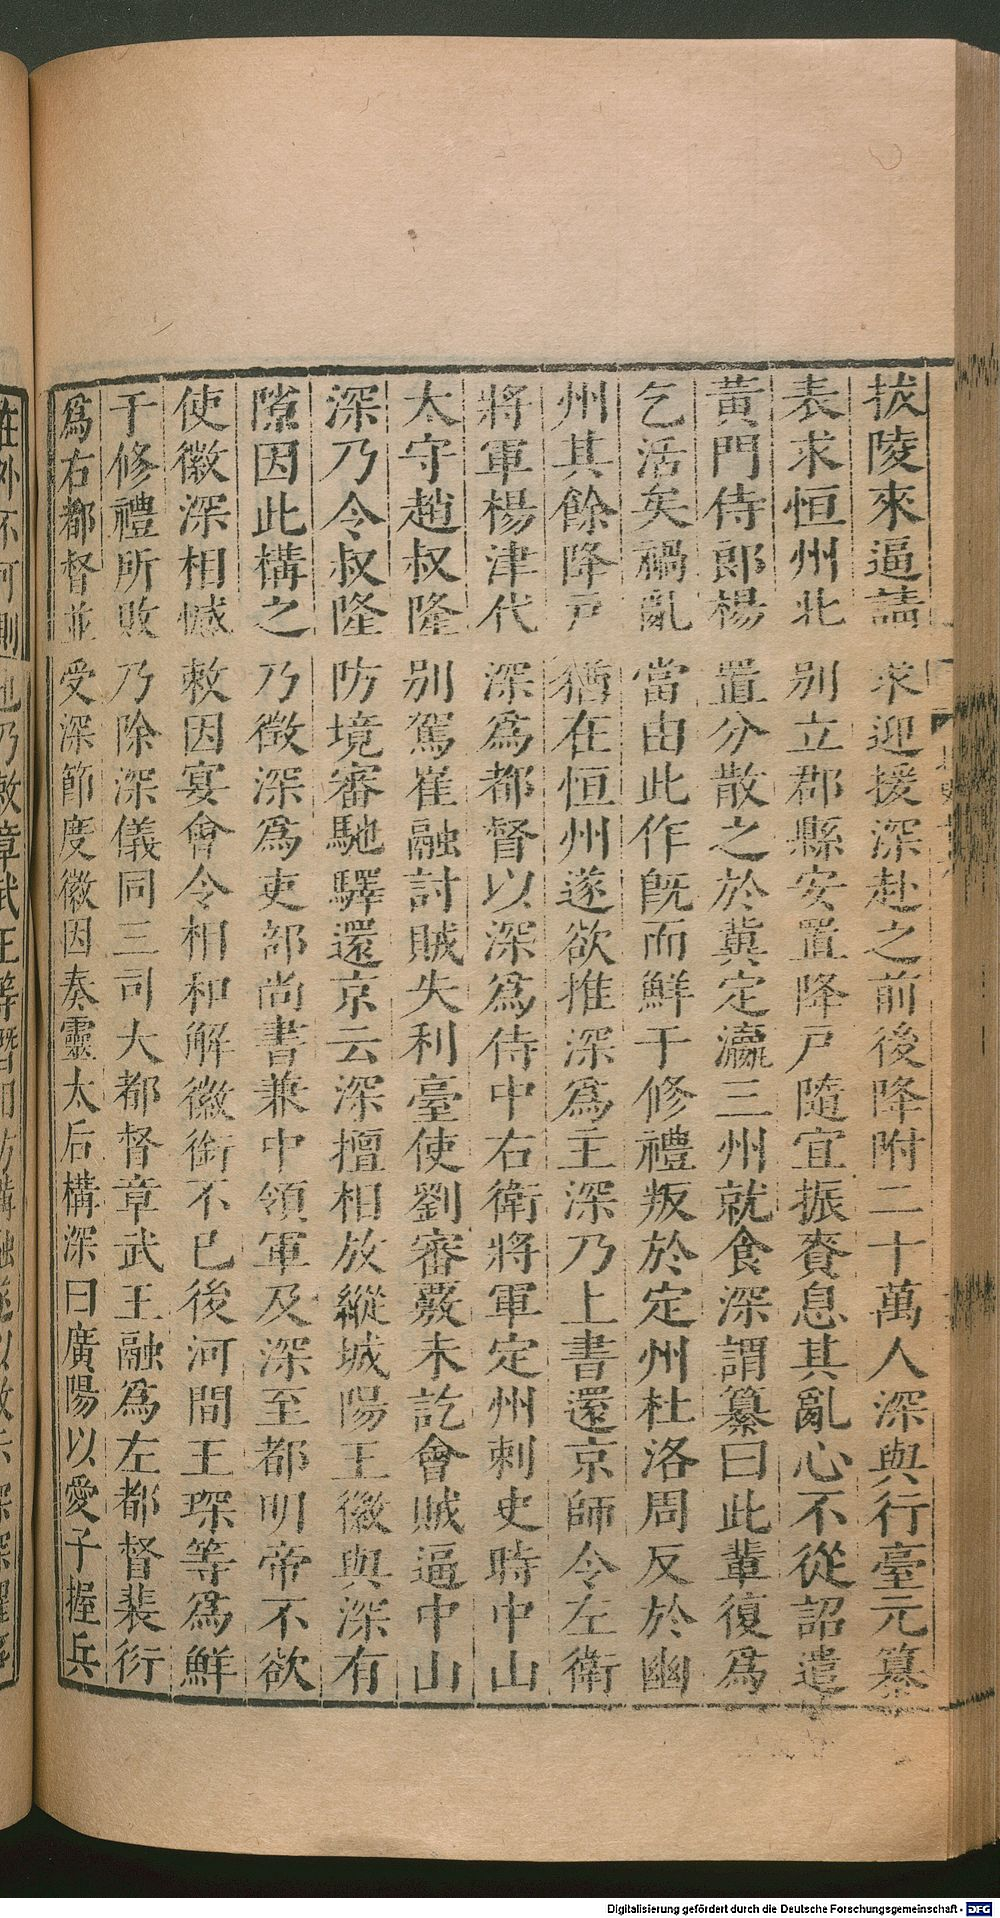 拔陵來逼請求迎援深赴之前後降附二十萬人深與行臺元纂
表求恒州北別立郡縣安置降戸隨宜振賚息其亂心不從詔遣
黃門侍郎楊置分散之於冀定瀛三州就食深謂纂曰此輩復爲
乞活矣禍亂當由此作旣而鮮于修禮叛於定州杜洛周反於幽
州其餘降戸猶在恒州遂欲推深爲主深乃上書還京師令左衛
將軍楊津代深爲都督以深爲侍中右衛將軍定州刺史時中山
太守趙叔隆別駕崔融討賊失利臺使劉審覈未訖會賊逼中山
深乃令叔隆防境審馳驛還京云深擅相放縱城陽王徽與深有
隙因此構之乃徵深爲吏部尚書兼中領軍及深至都明帝不欲
使徽深相憾敕因宴會令相和解徽銜不已後河間王琛等爲鮮
于修禮所敗乃除深儀同三司大都督章武王融爲左都督裴衍
爲右都督並受深節度徽因奏靈太后構深曰廣陽以愛子握兵
在外不可測也乃敕章武王等
Digitalisierung gefördert durch die Deutsche Forschungsgemeinschaft - DFG